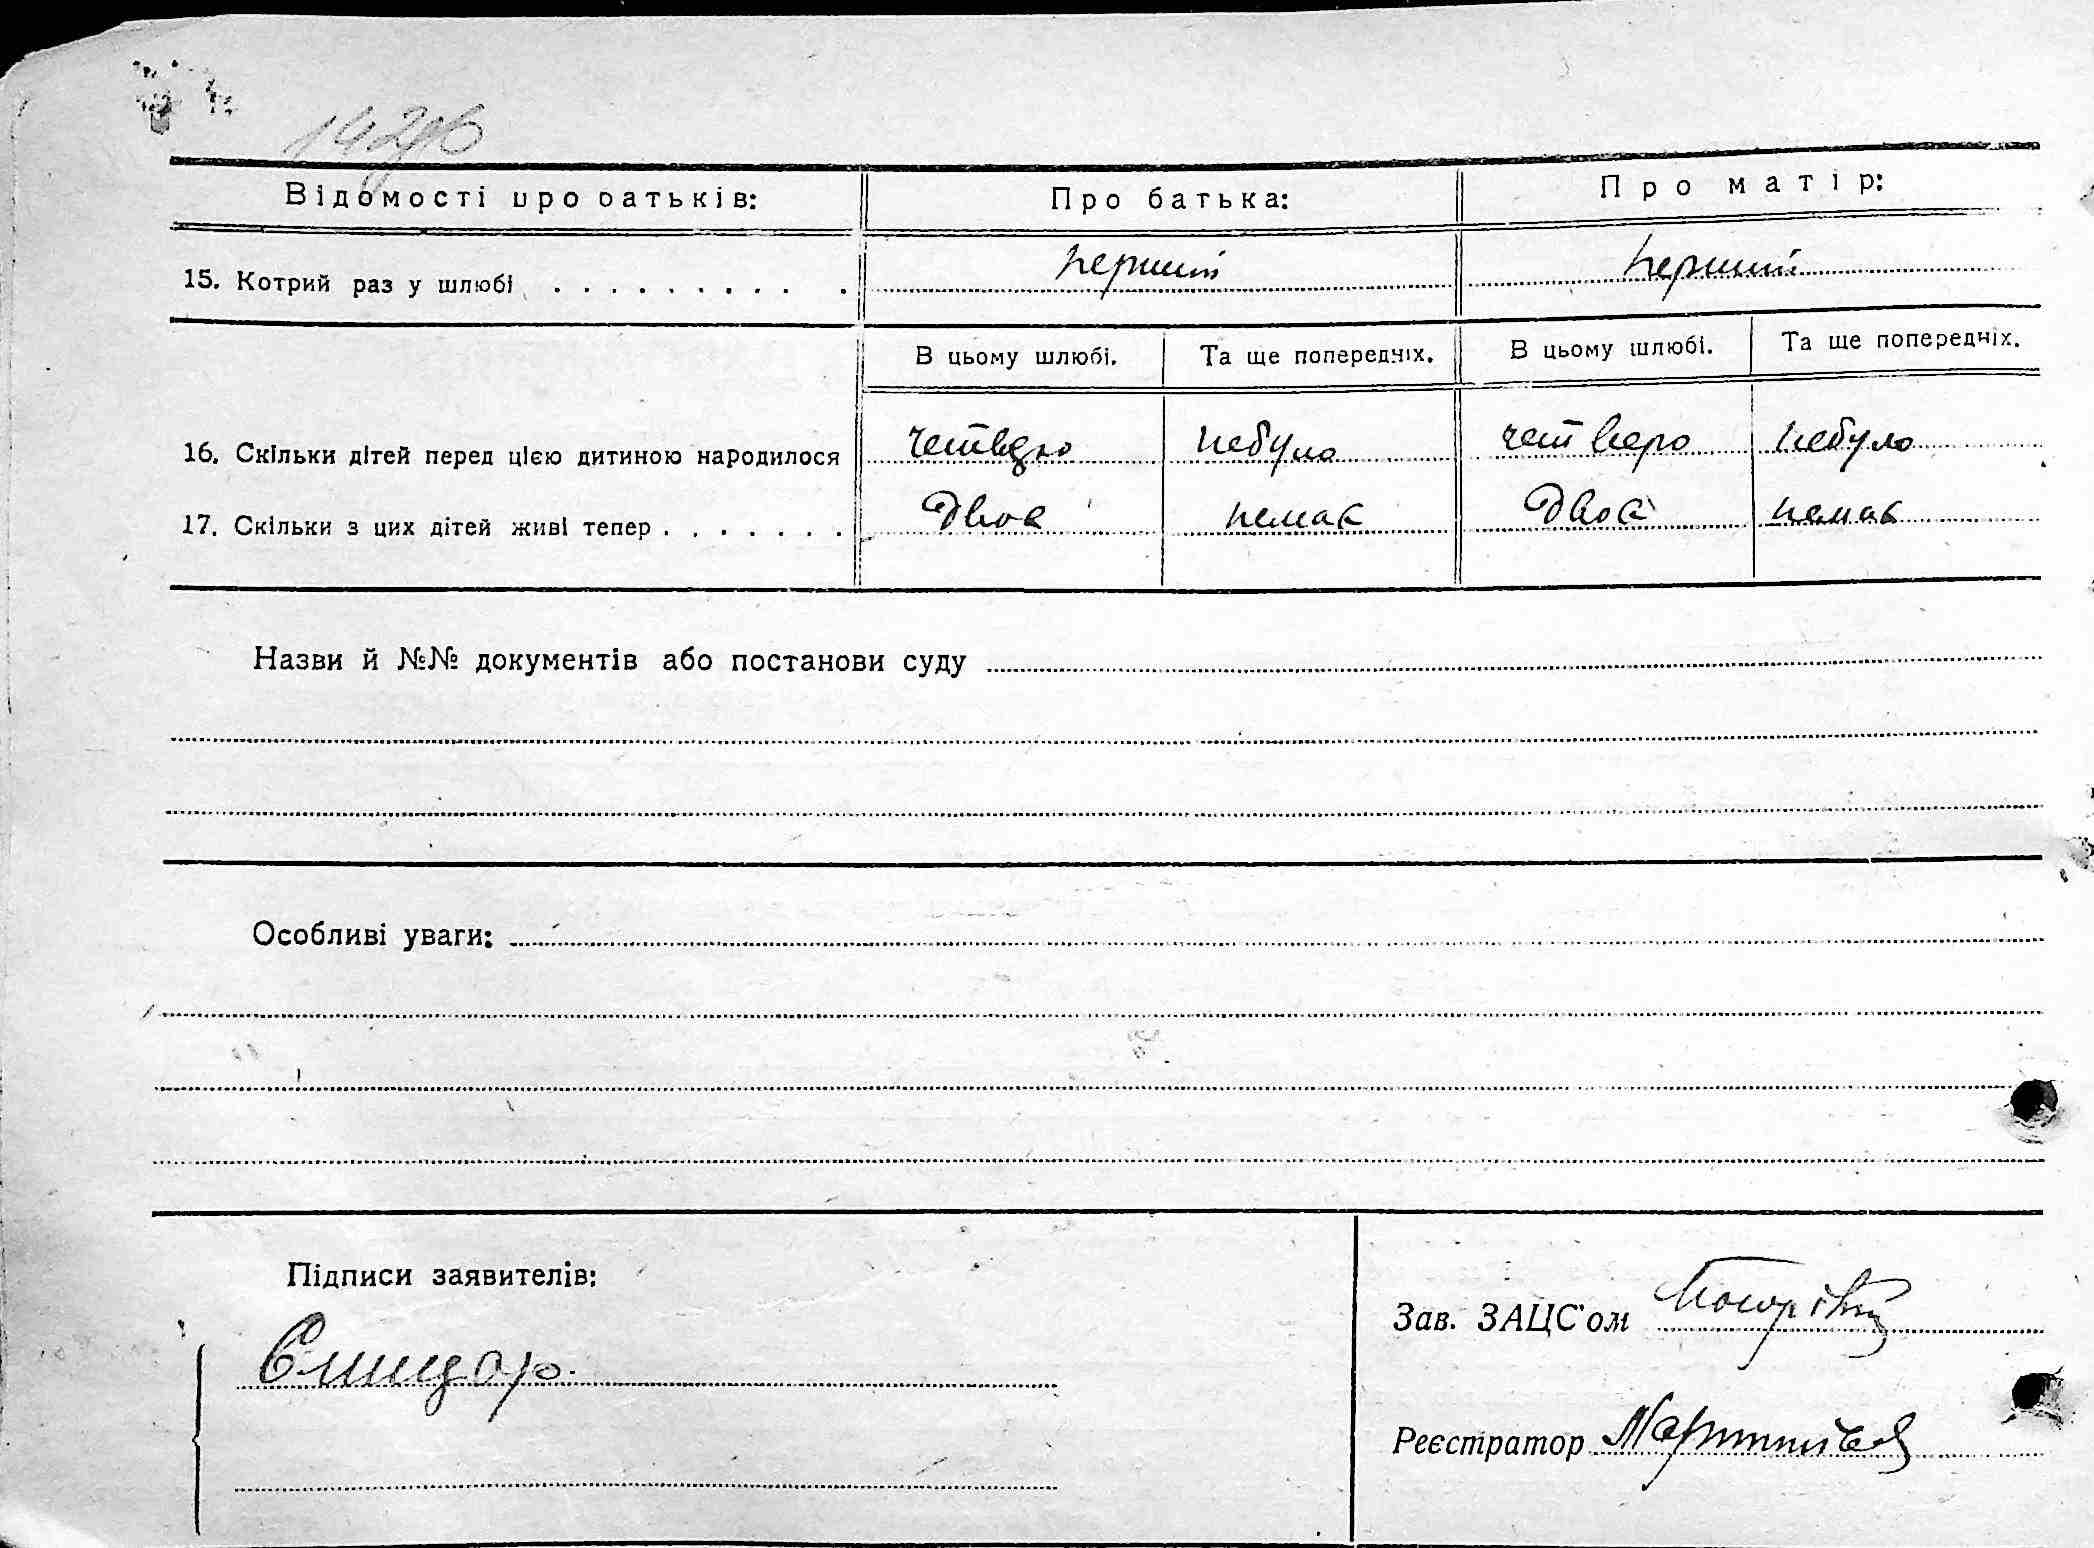 Відомості про батьків: Про батька: Про матір:
15. Котрий раз у шлюбі . . . . . . . . . . перший перший
В цьому шлюбі. Та ще попередніх. В цьому шлюбі. Та ще попередніх.
16. Скільки дітей перед цією дитиною народилося четверо небуло четверо небуло
17. Скільки з цих дітей живі тепер . . . . . . . Двоє немає Двоє немає
Назви й №№ документів або постанови суду
Особливі уваги:
Підписи заявителів:
Зав. ЗАЦС'ом
Реєстратор